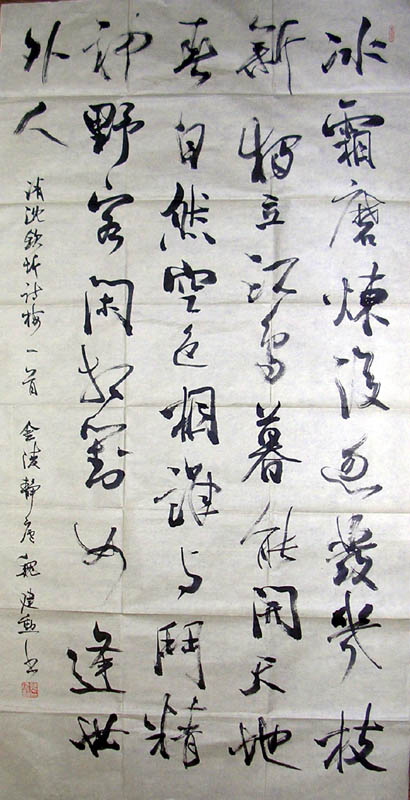 冰霜磨煉後忽發幾枝
新獨立江暮能開天地
春自然空色相誰与鬥精
神野客閑相對如逢世
外人
清沈欽圻詩梅一首 金陵靜魏建書